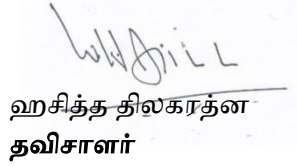 ஹசித்த திலகரத்ன
தவிசாளர்